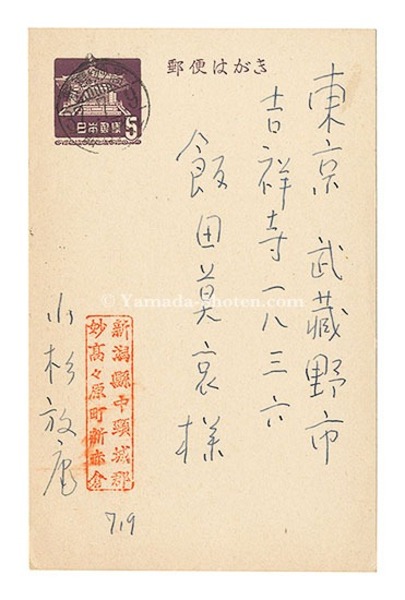 郵便はがき
日本郵便
5
東京 武蔵野市
吉祥寺一八三六
飯田莫哀様
新潟縣中頸城郡
妙高々原町新赤倉
小杉放庵
7.19
© Yamada-Shoten.com